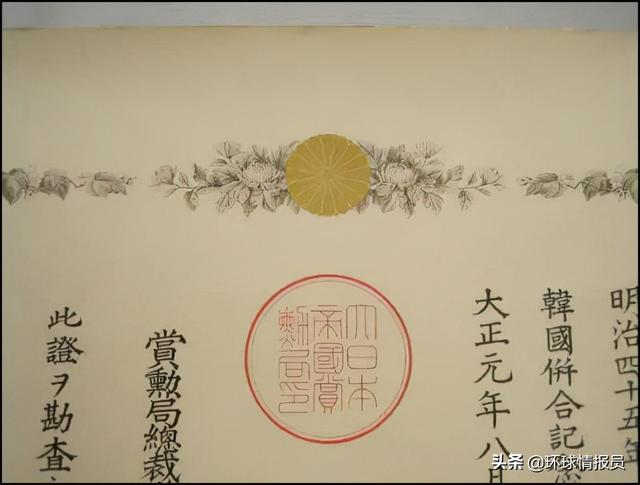 明治四十五年
韓國併合記
大正元年八月
大日本
帝國賞
勲局印
賞勲局總裁
此證ヲ勘査
头条 @环球情报员